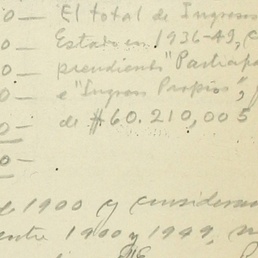 0— El total de Ingresos
0— Estado en 1936-49, C
0— prendiendo "Particip
0— e "Ingresos Propios",
0— de $60.210,005
0—
de 1900 y consideran
entre 1900 y 1949,